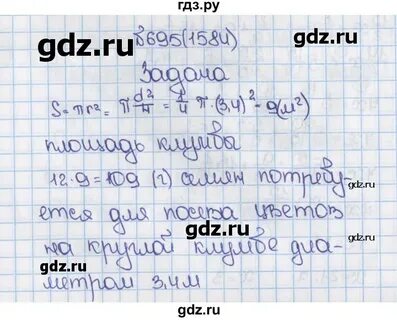 гдз.ру
gdz.ru
gdz.ru
№695(1584)
Задача
S=πr²= π d²/4 = 1/4 π·(3,4)² = 9(м²)
площадь клумбы
12·9=109 (г) семян потребу-
ется для посева цветов
на круглой клумбе диа-
метром 3,4м
gdz.ru
gdz.ru
gdz.ru
gdz.ru
gdz.ru
gdz.ru